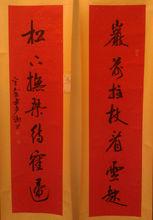 巖前拄杖看雲起
松下撫琴待鶴還